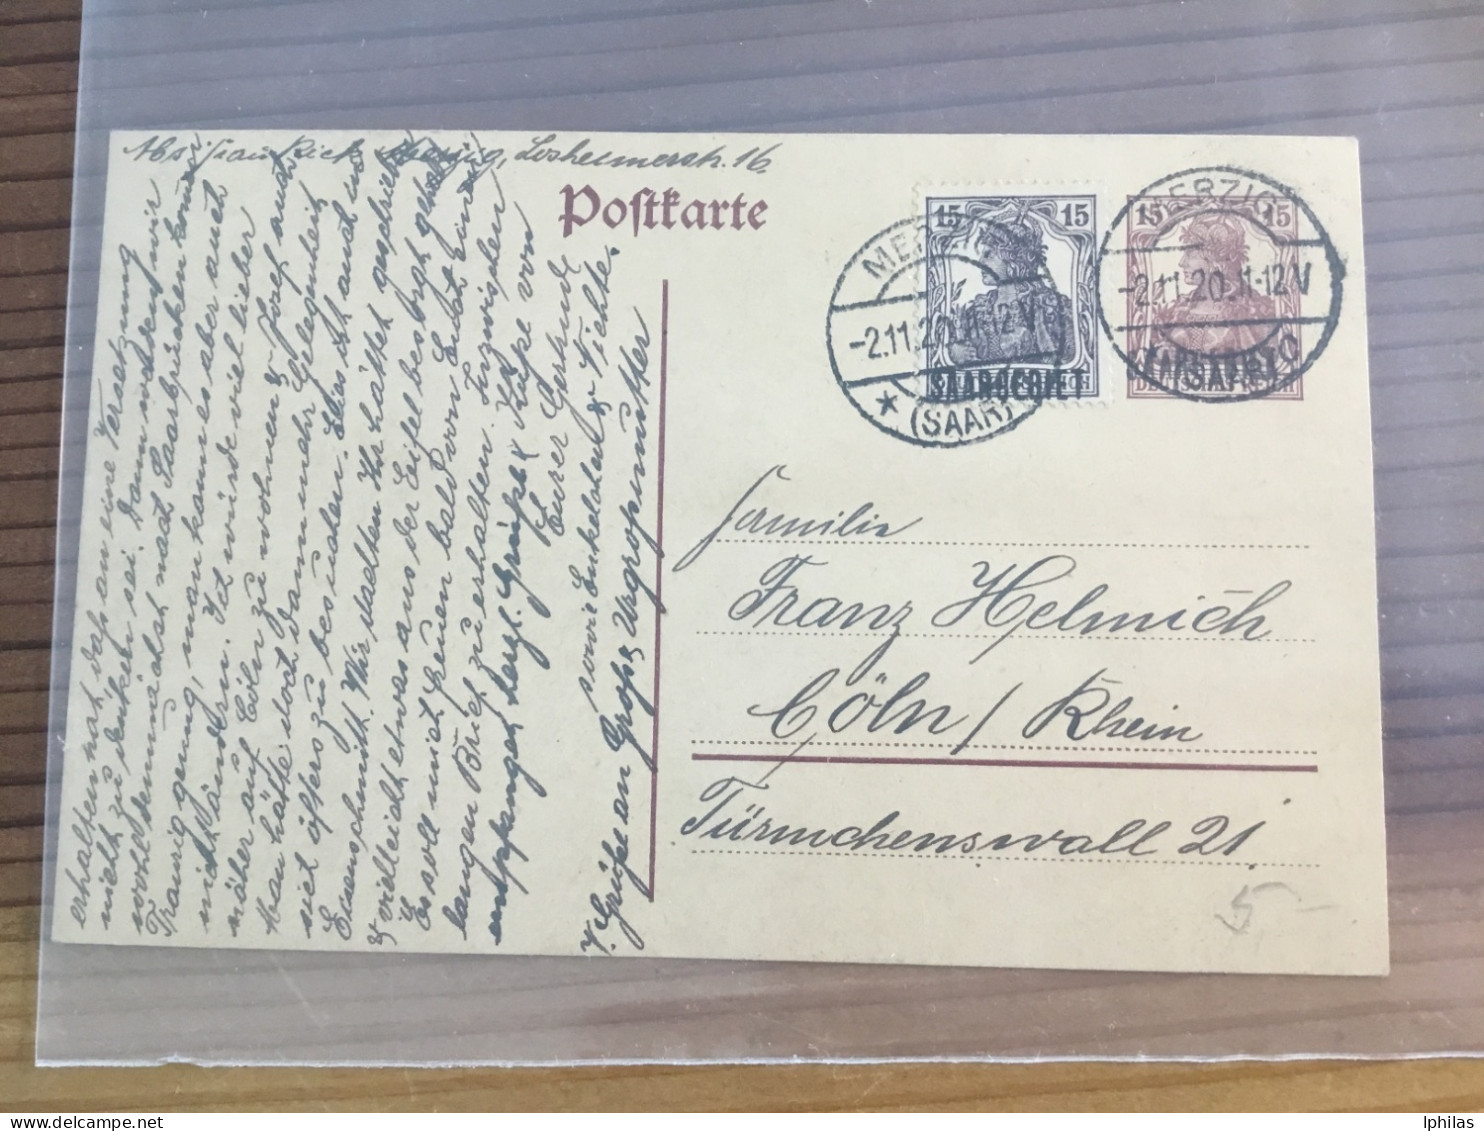 Abs. Frau Rich. Merzig, Losheimerstr. 16.
Postkarte
15 15
SAARGEBIET
15 15
SAARGEBIET
MERZIG
-2.11.20.11-12V
* (SAAR)
MERZIG
-2.11.20.11-12V
(SAAR)
Familie
Franz Helmich
Cöln / Rhein
Türmchenswall 21.
erhalten hat, daß an eine Versetzung
nicht zu denken sei. Dann werden wir
wohl demnächst nach Saarbrücken kommen
Traurig genug, man kann es aber auch
nicht ändern. Ich würde viel lieber
näher auf Cöln zu wohnen & Josef auch
Man hätte doch dann mehr Gelegenheit
sich öfters zu besuchen.
Wir dachten Ihr hättet geschrieben
& vielleicht etwas aus der Eifel besorgt gehabt
Es soll mich freuen bald von Euch einen
langen Brief zu erhalten. Inzwischen
empfanget herzl. Grüße & Küße von
Eurer Gertrud
sowie Enkelchen & Nichte.
V. Grüße an Groß & Urgroßmutter
5,-
lphilas